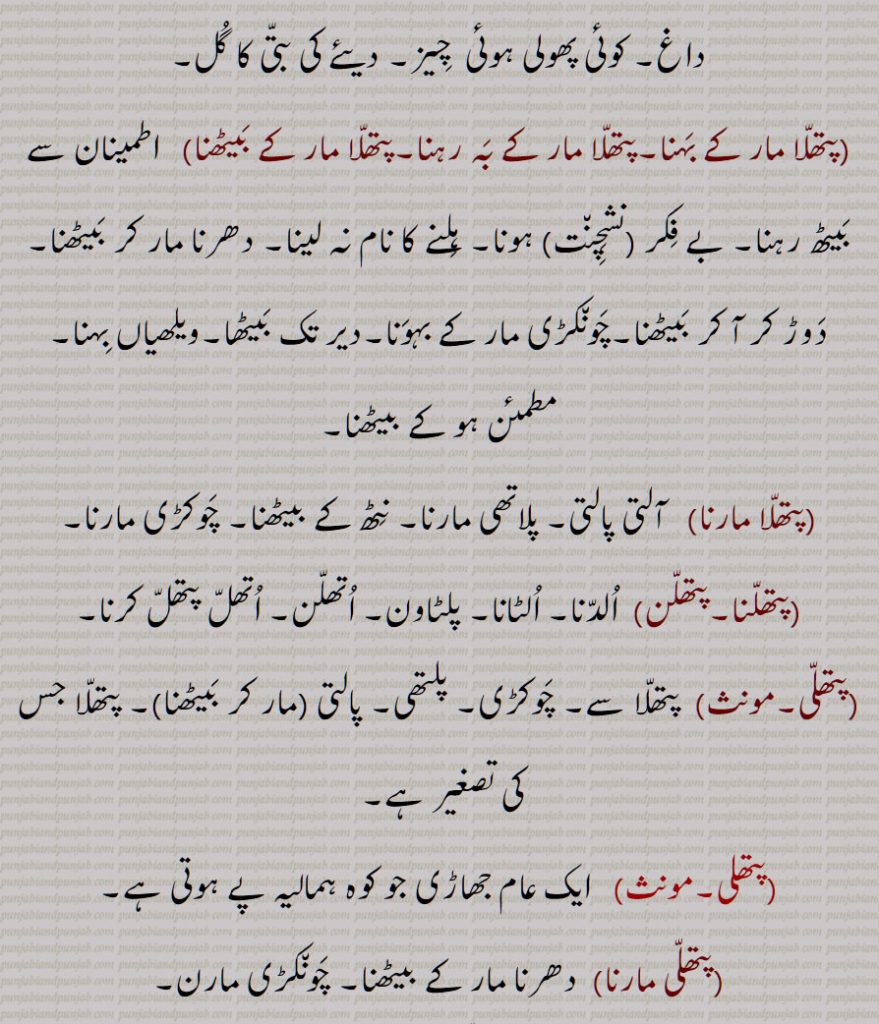 داغ۔ کوئی پھولی ہوئی چِیز۔ دیئے کی بتّی کا گُل۔
(پتھلّا مار کے بَہنا۔پتھلّا مار کے بَہ رہنا۔پتھلّا مار کے بَیٹھنا) اطمینان سے
بَیٹھ رہنا۔ بے فِکر (نشچِنّت) ہونا۔ ہِلنے کا نام نہ لینا۔ دھرنا مار کر بَیٹھنا۔
دَوڑ کر آ کر بَیٹھنا۔چَونّکڑی مار کے بہوَنا۔دیر تک بَیٹھا۔ویلھیاں بِہنا۔
مطمئن ہو کے بیٹھنا۔
(پتھلّا مارنا) آلتی پالتی۔ پلاتھی مارنا۔ نٹھ کے بیٹھنا۔ چَوکڑی مارنا۔
(پتھلّنا۔پتھلّن) اُلدّنا۔ اُلٹانا۔ پلٹاون۔ اُتھلّن۔ اُتھلّ پتھلّ کرنا۔
(پتھلّی۔مونث) پتھلّا سے۔ چَوکڑی۔ پلتھی۔ پالتی (مار کر بَیٹھنا)۔ پتھلّا جس
کی تصغیر ہے۔
(پتھلی۔مونث) ایک عام جھاڑی جو کوہ ہمالیہ پے ہوتی ہے۔
(پتھلّی مارنا) دھرنا مار کے بیٹھنا۔ چَونّکڑی مارن۔
punjabiandpunjab.com